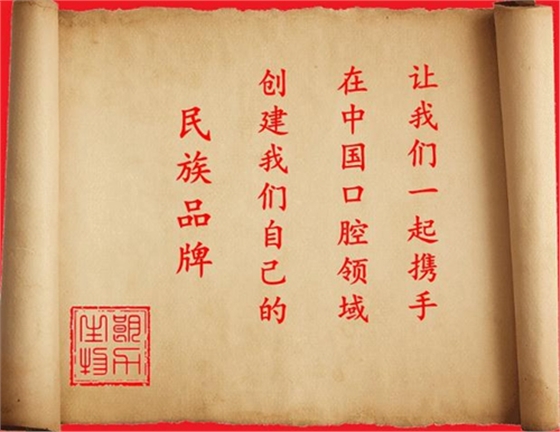 让我们一起携手
在中国口腔领域
创建我们自己的
民族品牌
生物